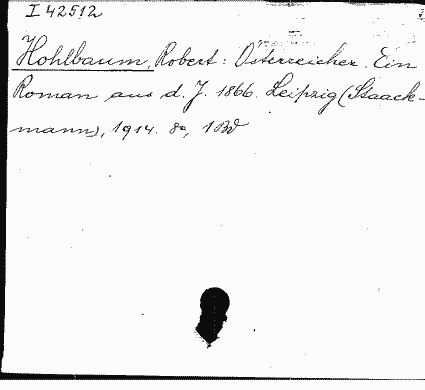 I 42512
Hohlbaum, Robert: Österreicher. Ein
Roman aus d. J. 1866. Leipzig (Staack-
mann), 1914. 8°, 1 Bd